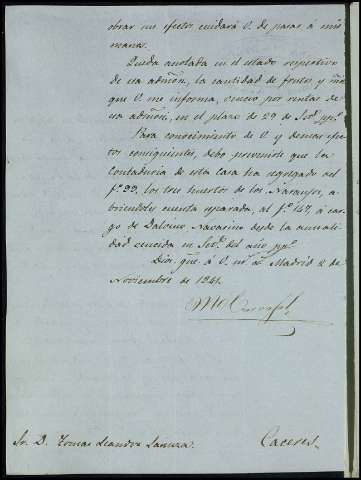 obrar un efectos cuidará V. de pasar á mis
manos.
Queda anotada en el estado respectivo
de esa admōn, la cantidad de frutos y
que V. me informa, venció por rentas de
esa admōn, en el plazo de 29 de Set.e pp.o
Para conocimiento de V. y demas efec
tos consiguientes, debo prevenirle que la
Contaduria de esta casa ha segregado del
f.o 99, los tres huertos de los Naranjos, a
briendoles cuenta separada, al f.o 147, á car
go de Dalmacio Navarino desde la anuali
dad vencida en Set.e del año pp.o
Dios gue. á V. ms. as. Madrid 2 de
Noviembre de 1841.
Sr. D. Tomas Leandro Lanuza.
Caceres